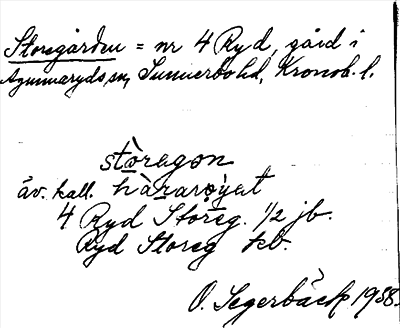 Storegården = nr 4 Ryd, gård i
Agunnaryds sn, Sunnerbo hd, Kronob. l.
stòregon
äv. kall. hàrarøyet
4 Ryd Storeg. 1/2 jb.
Ryd Storeg kb.
O. Segerbäck 1938.